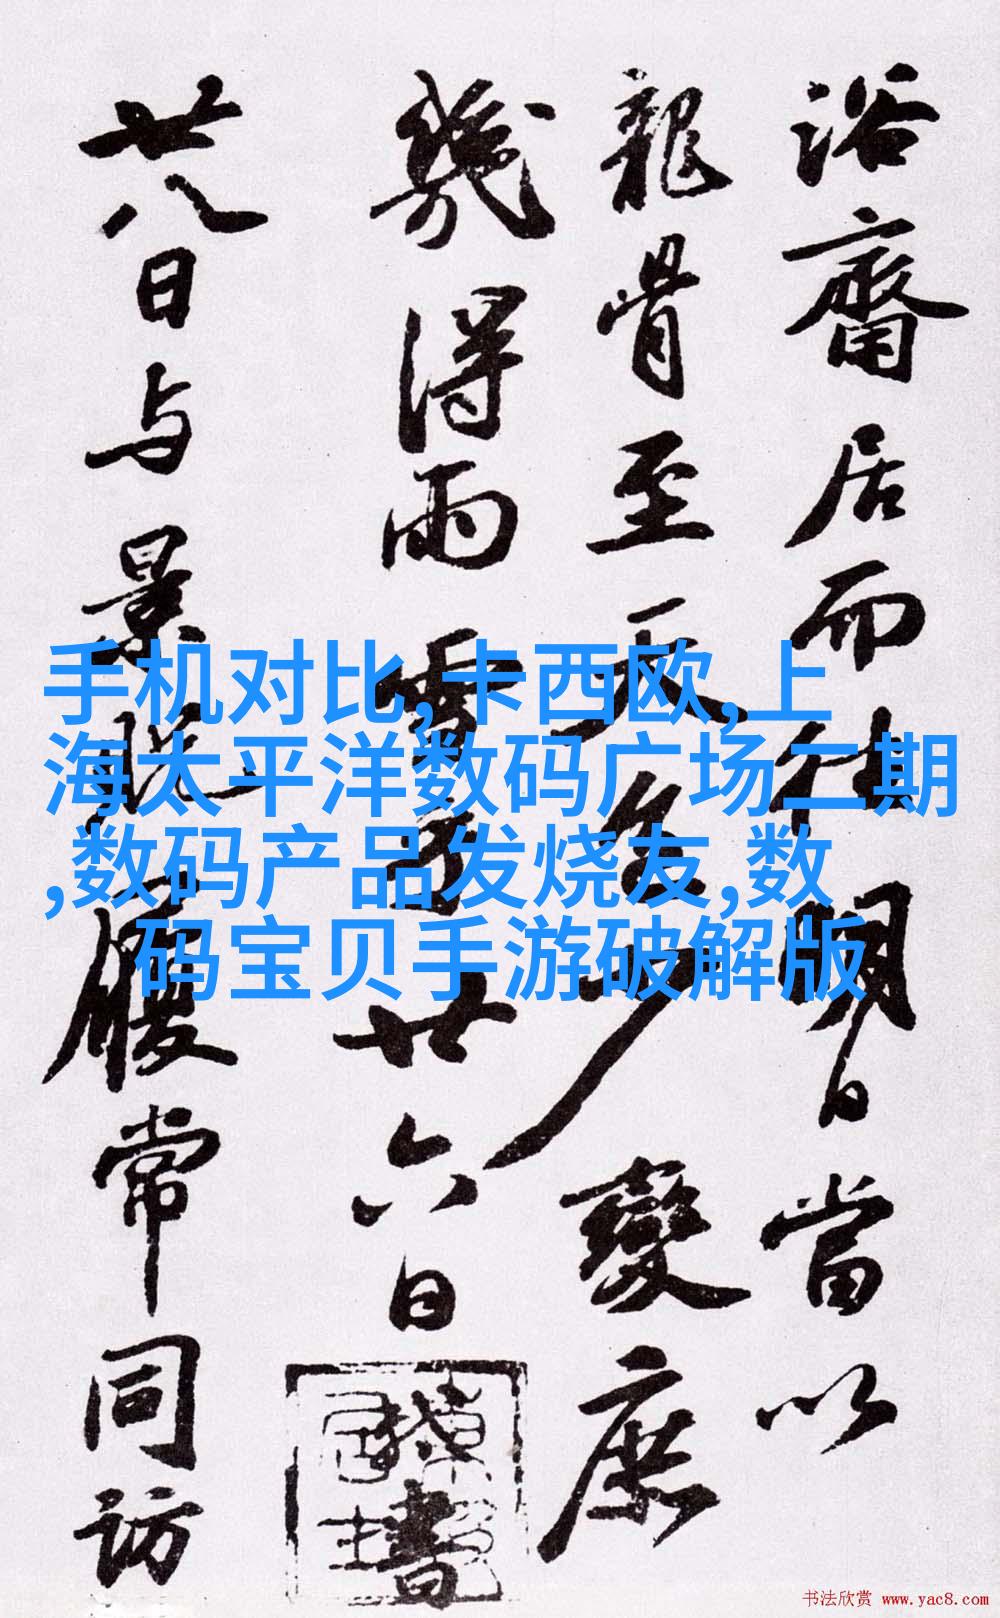 浴齋居而徃明日當以
龍骨至天
變庶
幾得雨雪
廿六日
書
廿八日与景
履常同訪
手机对比,卡西欧,上
海太平洋数码广场二期
,数码产品发烧友,数
码宝贝手游破解版
书法欣赏 www.yac8.com